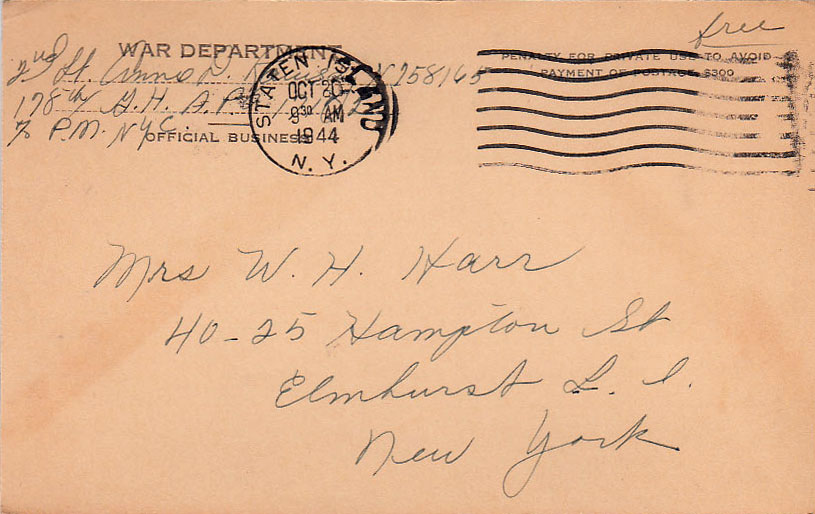 free
WAR DEPARTMENT
2nd Lt. Anna D. N758165
178th G.H. A.P.O.
℅ P.M. N.Y.C.
OFFICIAL BUSINESS
STATEN ISLAND
OCT 20
9 30 AM
1944
N. Y.
PENALTY FOR PRIVATE USE TO AVOID
PAYMENT OF POSTAGE, $300
Mrs W. H. Harr
40-25 Hampton St
Elmhurst L. I.
New York